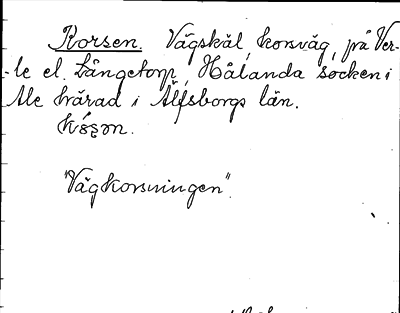 Korsen. Vägskäl, korsväg, på Ver-
-le el. Långetorp, Hålanda socken i
Ale härad i Älfsborgs län.
"Vägkorsningen".